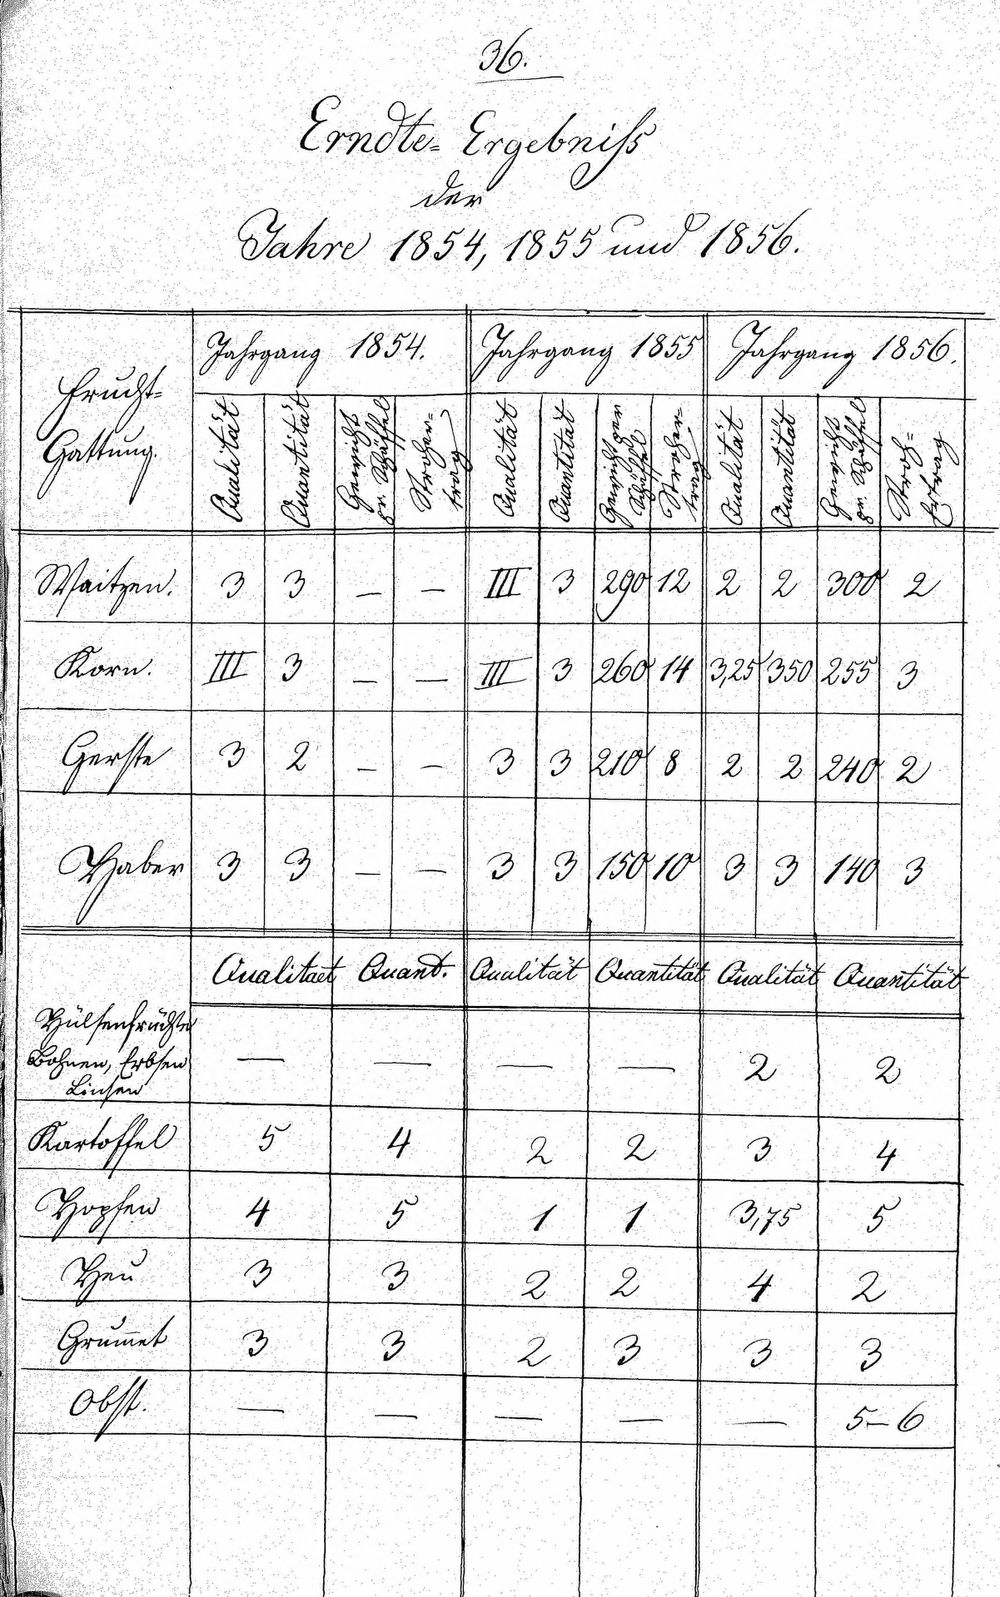 36.
Erndte-Ergebniß
der
Jahre 1854, 1855 und 1856.
Frucht-Gattung. Jahrgang 1854. Jahrgang 1855 Jahrgang 1856.
Qualität Quantität Gewicht pr. Schäffel Stroher-trag Qualität Quantität Gewicht per Schäffel Stroher-trag Qualität Quantität Gewicht pr. Schäffel Stroh-Ertrag
Waitzen. 3 3 — — III 3 290 12 2 2 300 2
Korn. III 3 — — III 3 260 14 3,25 350 255 3
Gerste 3 2 — — 3 3 210 8 2 2 240 2
Haber 3 3 — — 3 3 150 10 3 3 140 3
Qualitaet Quant. Qualität Quantität Qualität Quantität
Hülsenfrüchte
Bohnen, Erbsen — — — — 2 2
Linsen
Kartoffel 5 4 2 2 3 4
Hopfen 4 5 1 1 3,75 5
Heu 3 3 2 2 4 2
Grum̅et 3 3 2 3 3 3
Obst. — — — — — 5–6